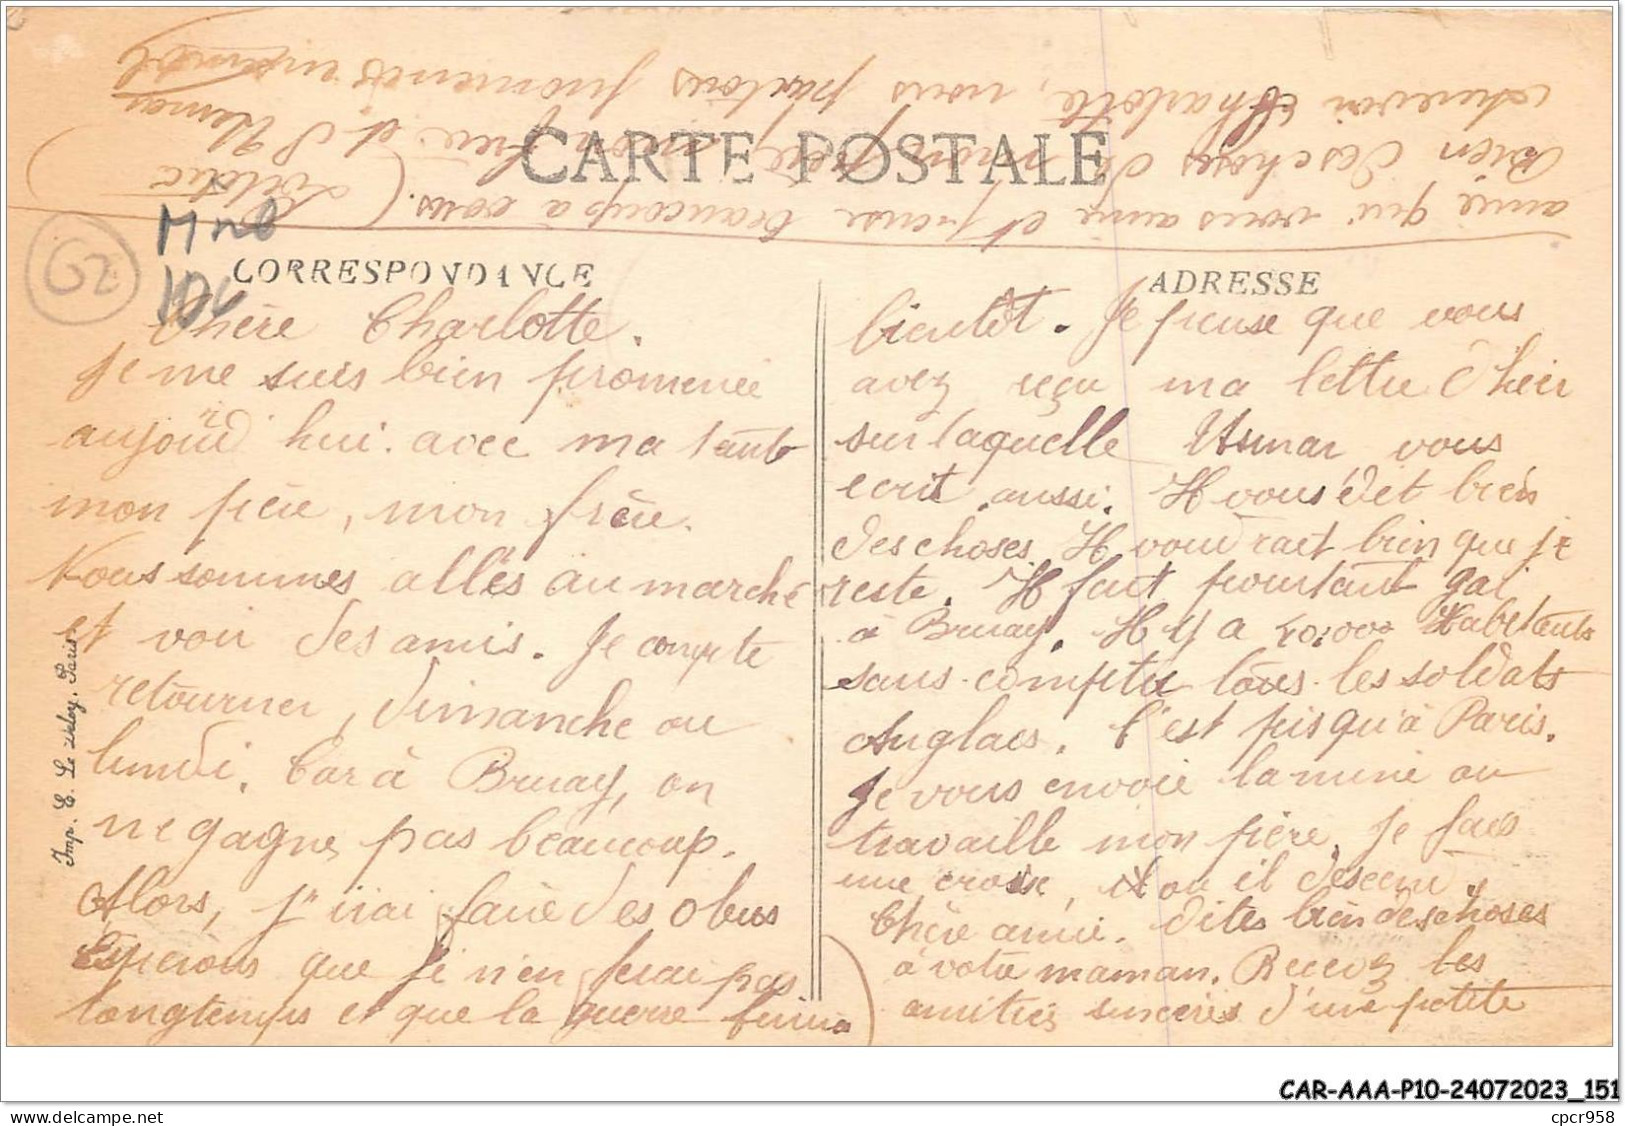 CARTE POSTALE
CORRESPONDANCE
ADRESSE
Chère Charlotte.
Je me suis bien promenée
aujourd'hui. avec ma tante
mon père, mon frère.
Nous sommes allés au marché
et voir des amis. Je compte
retourner, dimanche ou
lundi. Car à Bruay, on
ne gagne pas beaucoup.
Alors, j'irai faire des obus
Espérons que je n'en ferai pas
longtemps et que la guerre finira
bientôt. Je pense que vous
avez reçu ma lettre d'hier
sur laquelle Usmar vous
ecrit aussi. Il vous dit bien
des choses. Il voudrait bien que je
reste. Il fait pourtant gai
à Bruay. Il y a 40.000 Habitants
sans compter tous les soldats
Anglais. C'est pis qu'à Paris.
Je vous envoie la mine ou
travaille mon père. Je fais
une croix, ou il descend.
Chère amie. Dites bien des choses
à votre maman. Recevez les
amitiés sincères d'une petite
amie qui vous aime et pense beaucoup à vous.
Bien des choses de mon père, mon frère et d'Usmar
Charlotte, nous parlons
Imp. E. Le Deley, Paris
G2
Mnb
10c
CAR-AAA-P10-24072023_151
Delcampe.net
cpcr958